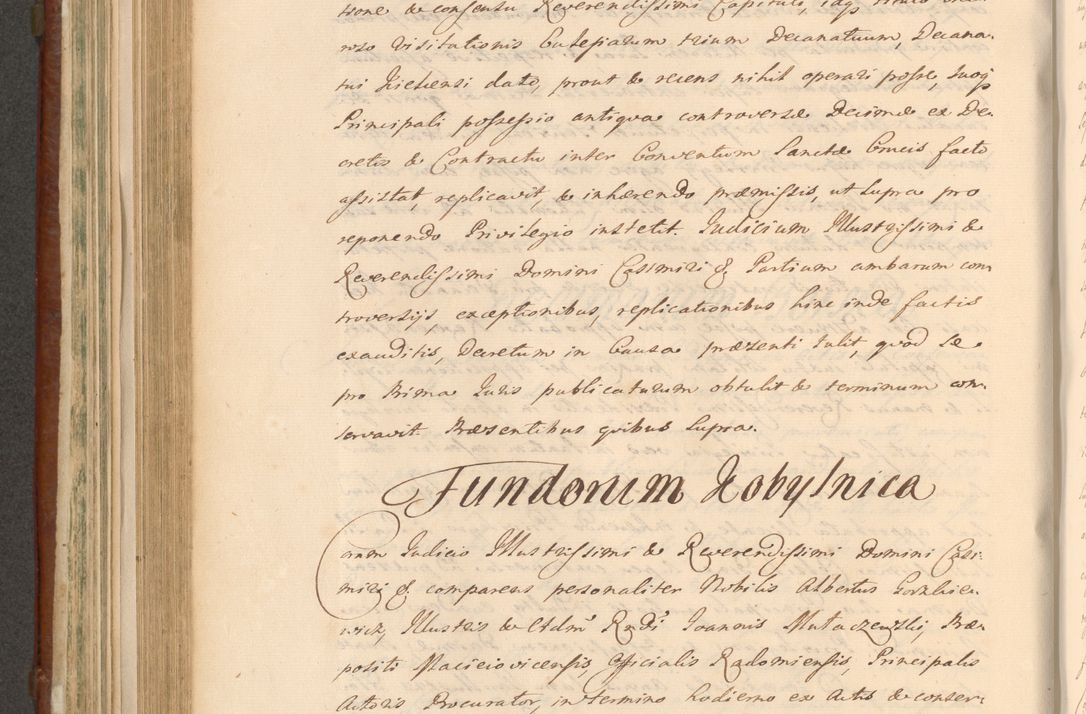 tione & consensu Reverendissimi Capituli,
roso Visitationis Ecclesiarum trium Decanatuum, Decana-
tui Kielcensi dato, prout & recens nihil operari posse, suoqȝ
Principali possessio antiqua controversæ Decimæ ex De-
cretis & Contractu inter Conventum Sanctæ Crucis facto
assistat, replicavit, & inhærendo præmissis, ut supra pro
reponendo Privilegio institit. Judicium Illustrissimi &
Reverendissimi Domini Casimiri &. Partium ambarum con-
troversijs, exceptionibus, replicationibus hinc inde factis
exauditis, Decretum in Causa præsenti tulit, quod se
pro Prima Juris publicaturum obtulit & terminum con-
servavit. Præsentibus quibus supra.
Fundorum Kobylnica
Coram Judicio Illustrissimi & Reverendissimi Domini Casi-
miri &. comparens personaliter Nobilis Albertus
Illustris & Adm. Rndi Joannis Præ-
positi Macieiovicensis, Officialis Radomiensis, Principalis
Actoris Procurator, in termino hodierno ex Actis & conser-